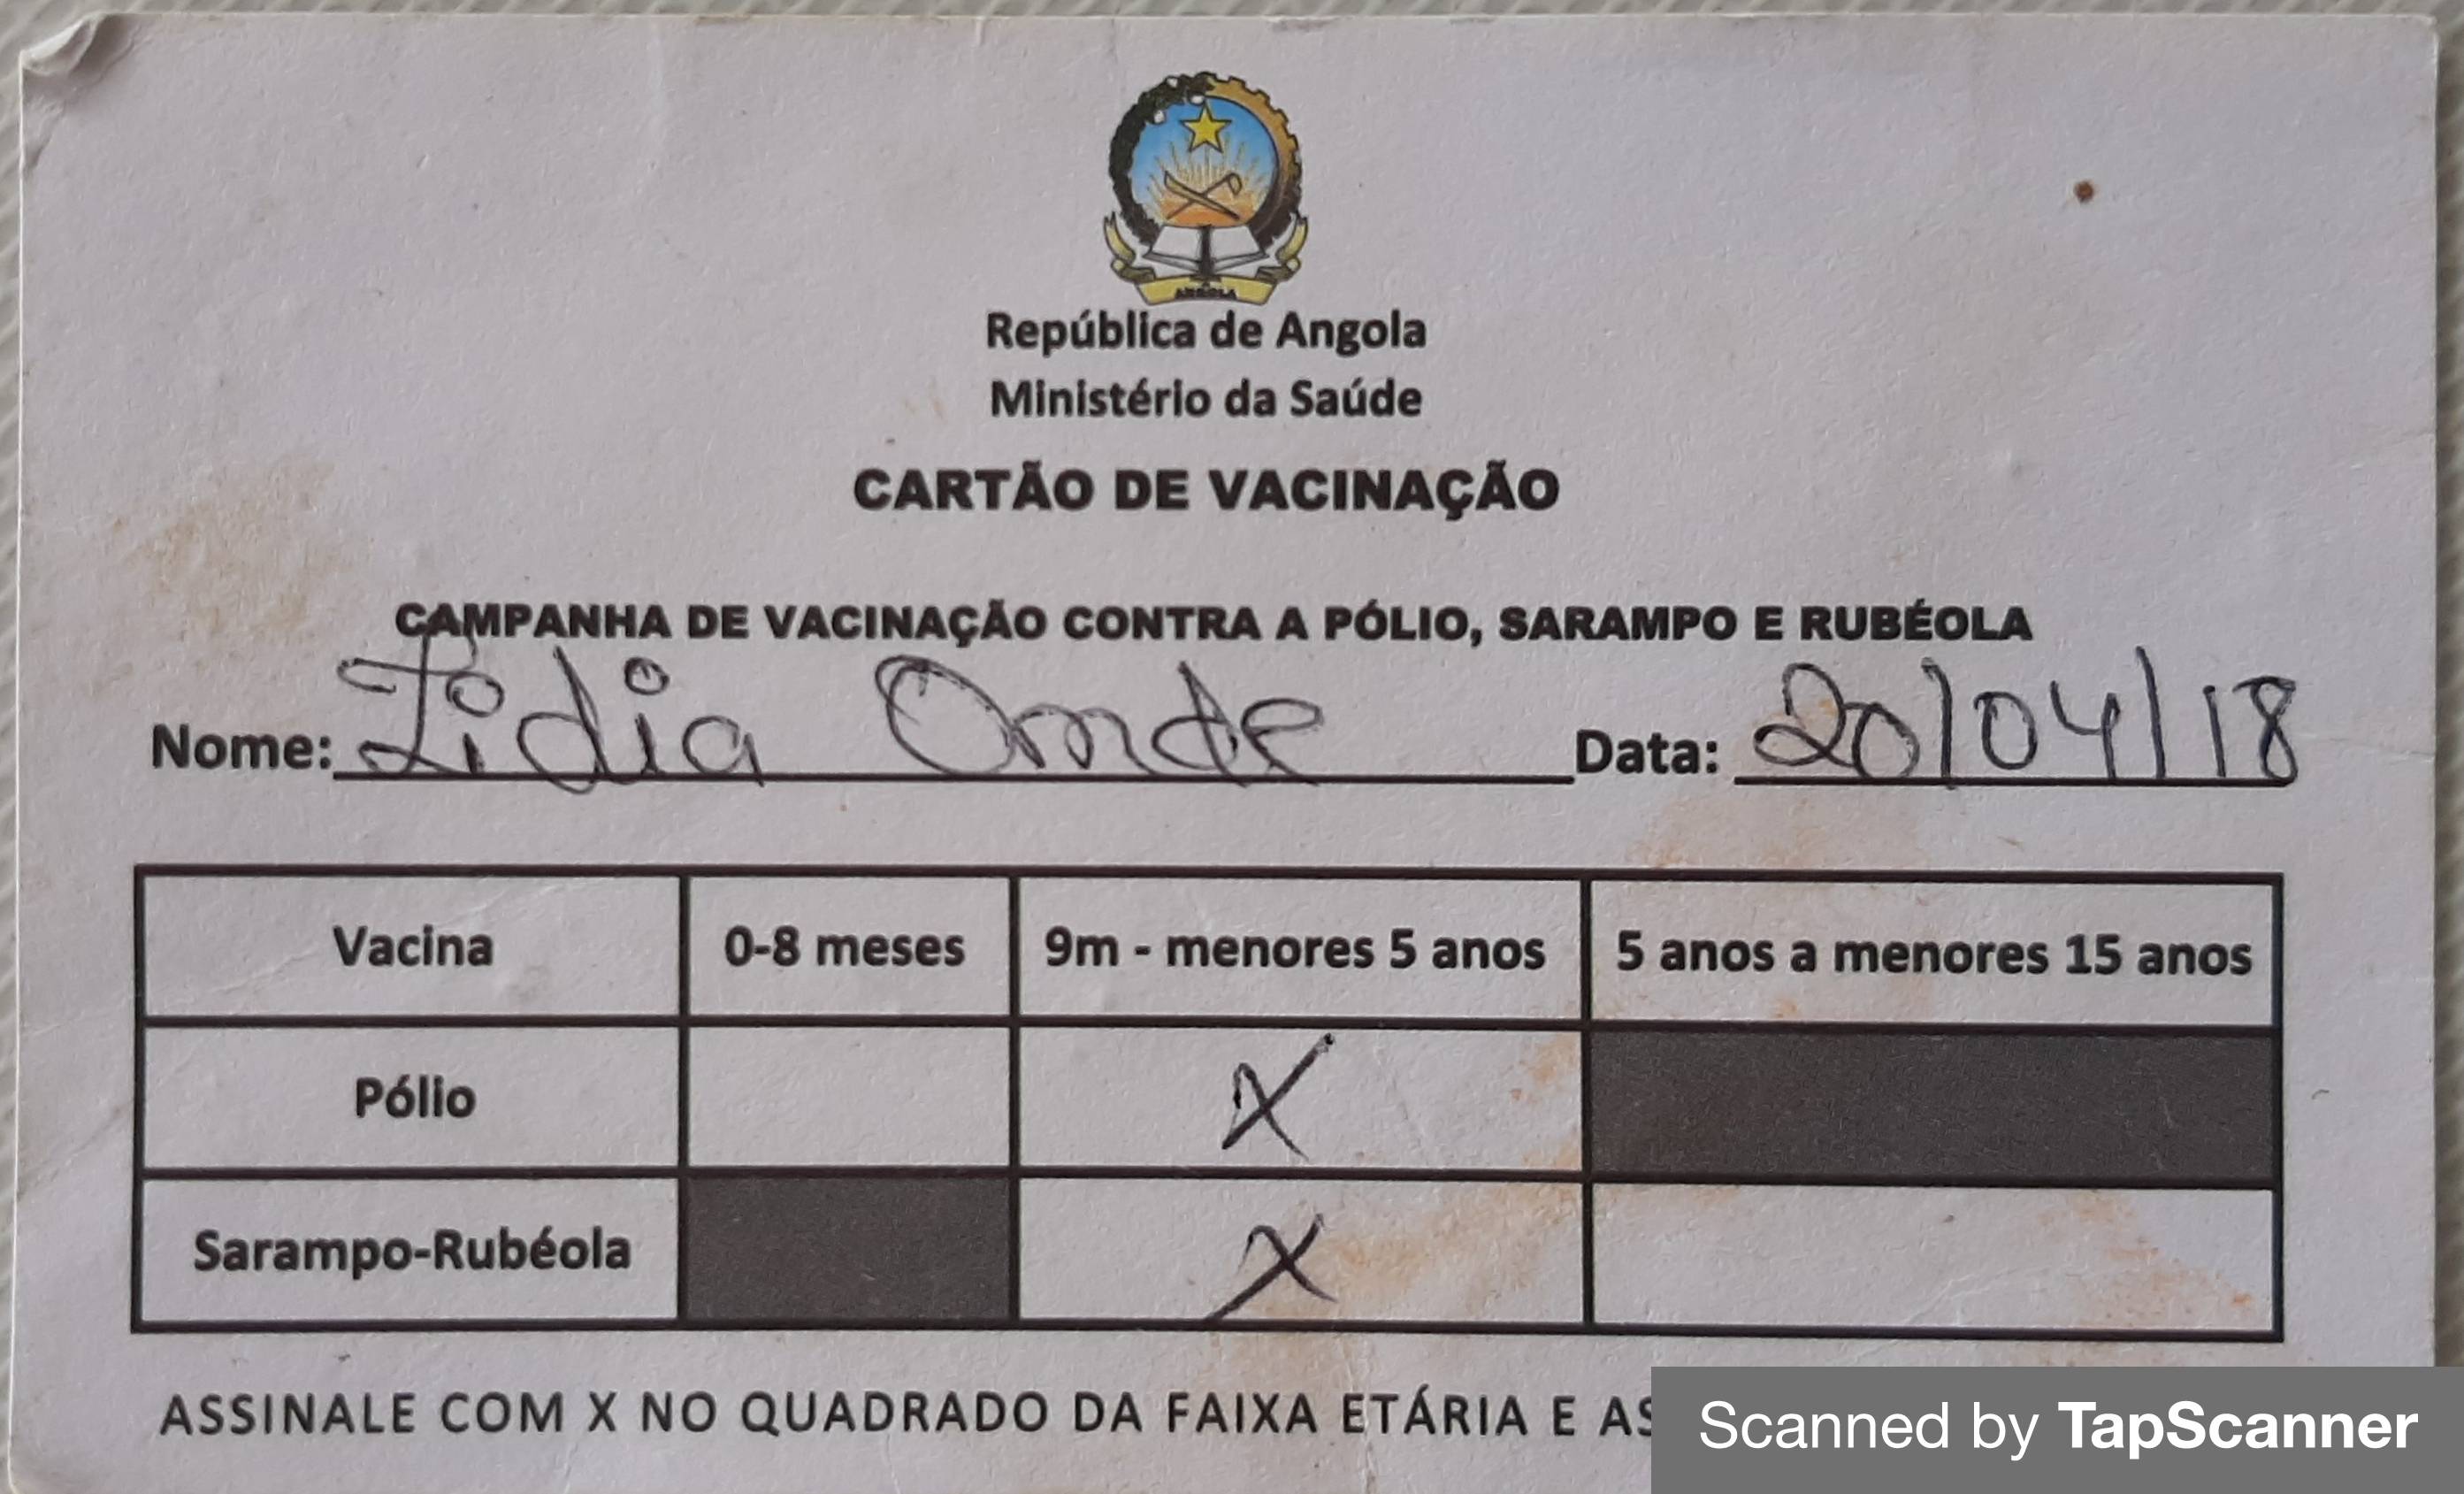 ANGOLA
República de Angola
Ministério da Saúde
CARTÃO DE VACINAÇÃO
CAMPANHA DE VACINAÇÃO CONTRA A PÓLIO, SARAMPO E RUBÉOLA
Nome: Lidia Onde Data: 20/04/18
Vacina 0-8 meses 9m - menores 5 anos 5 anos a menores 15 anos
Pólio X
Sarampo-Rubéola X
ASSINALE COM X NO QUADRADO DA FAIXA ETÁRIA E AS
Scanned by TapScanner